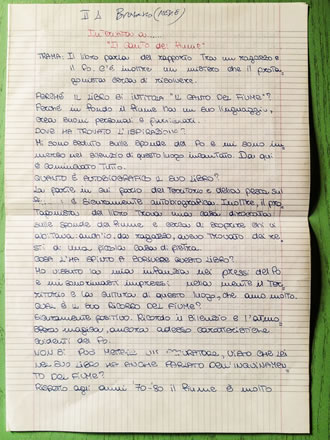 II A
Intervista a ......
"Il canto del fiume"
TRAMA: Il libro parla del rapporto tra un ragazzo e
il Po. C'è inoltre un mistero che il prota
gonista cerca di risolvere.
PERCHÉ IL LIBRO SI INTITOLA "IL CANTO DEL FIUME"?
Perché in fondo il fiume ha un suo linguaggio,
crea suoni personali e particolari.
DOVE HA TROVATO L'ISPIRAZIONE?
Mi sono seduto sulle sponde del Po e mi sono im
merso nel silenzio di questo luogo incantato. Da qui
è cominciato tutto.
QUANTO È AUTOBIOGRAFICO IL SUO LIBRO?
La parte in cui parlo del territorio e della pesca sul
è sicuramente autobiografica. Inoltre, il pro
tagonista del libro trova una casa diroccata
sulle sponde del fiume e cerca di scoprire chi ci
abitava; anch'io, da ragazzo, avevo trovato dei re
sti di una piccola casa di pietra.
COSA L'HA SPINTO A SCRIVERE QUESTO LIBRO?
Ho vissuto la mia infanzia nei pressi del Po
e mi sono rimasti impressi nella mente il ter
ritorio e la cultura di questo luogo, che amo molto.
QUAL È IL SUO RICORDO DEL FIUME?
Sicuramente positivo. Ricordo il silenzio e l'atmo
sfera magica, ancora adesso caratteristiche
evidenti del Po.
NON SI PUÒ VISTO CHE LEI
NEL SUO LIBRO HA ANCHE PARLATO DELL'INQUINAMEN
TO DEL FIUME?
Rispetto agli anni 70-80 il fiume è molto